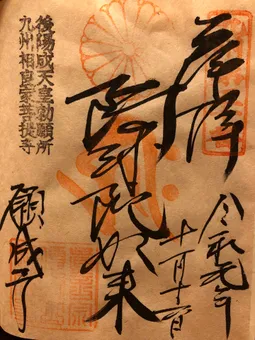 奉拝
令和元年
阿弥陀如来
後陽成天皇勅願所
九州相良家菩提寺
願成寺